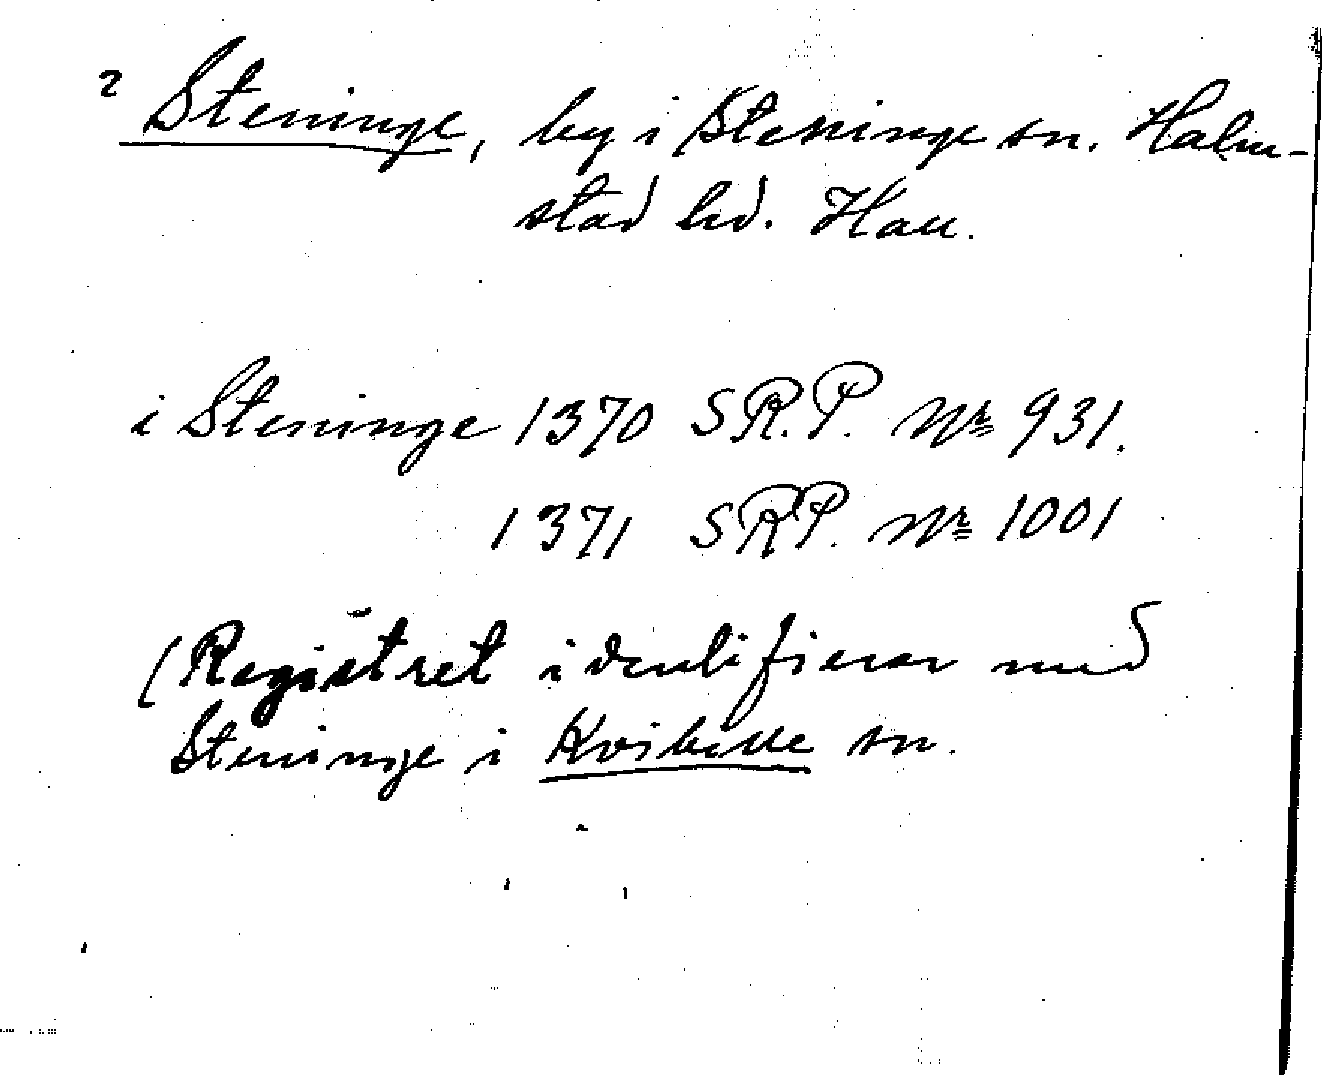 ? Steninge, by i Steninge sn. Halm-
stad hd. Hall.
i Steninge 1370 SR.P. Nr 931.
1371 SRP. Nr 1001
(Registret identifierar med
Steninge i Kvibille sn.